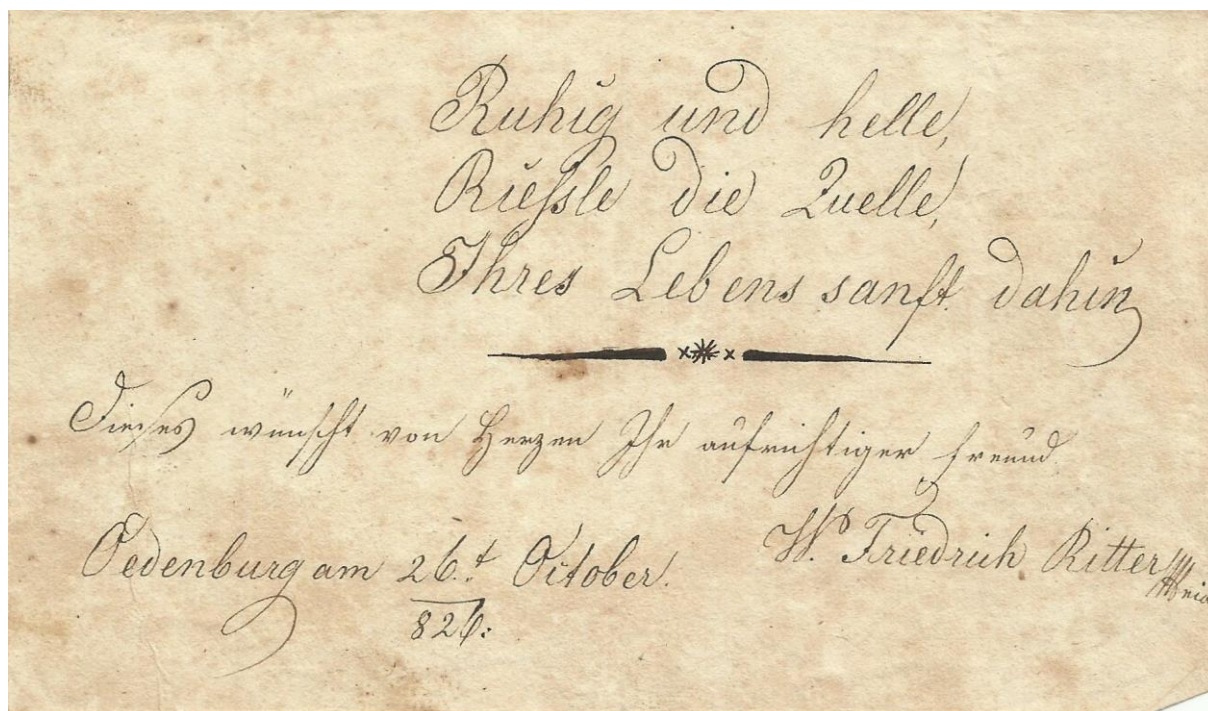 Ruhig und helle,
Rießle die Quelle,
Ihres Lebens sanft dahin
Dieses wünscht von Herzen Ihr aufrichtiger Freund
W. Friedrich Ritter
Oedenburg am 26.t October.
826.